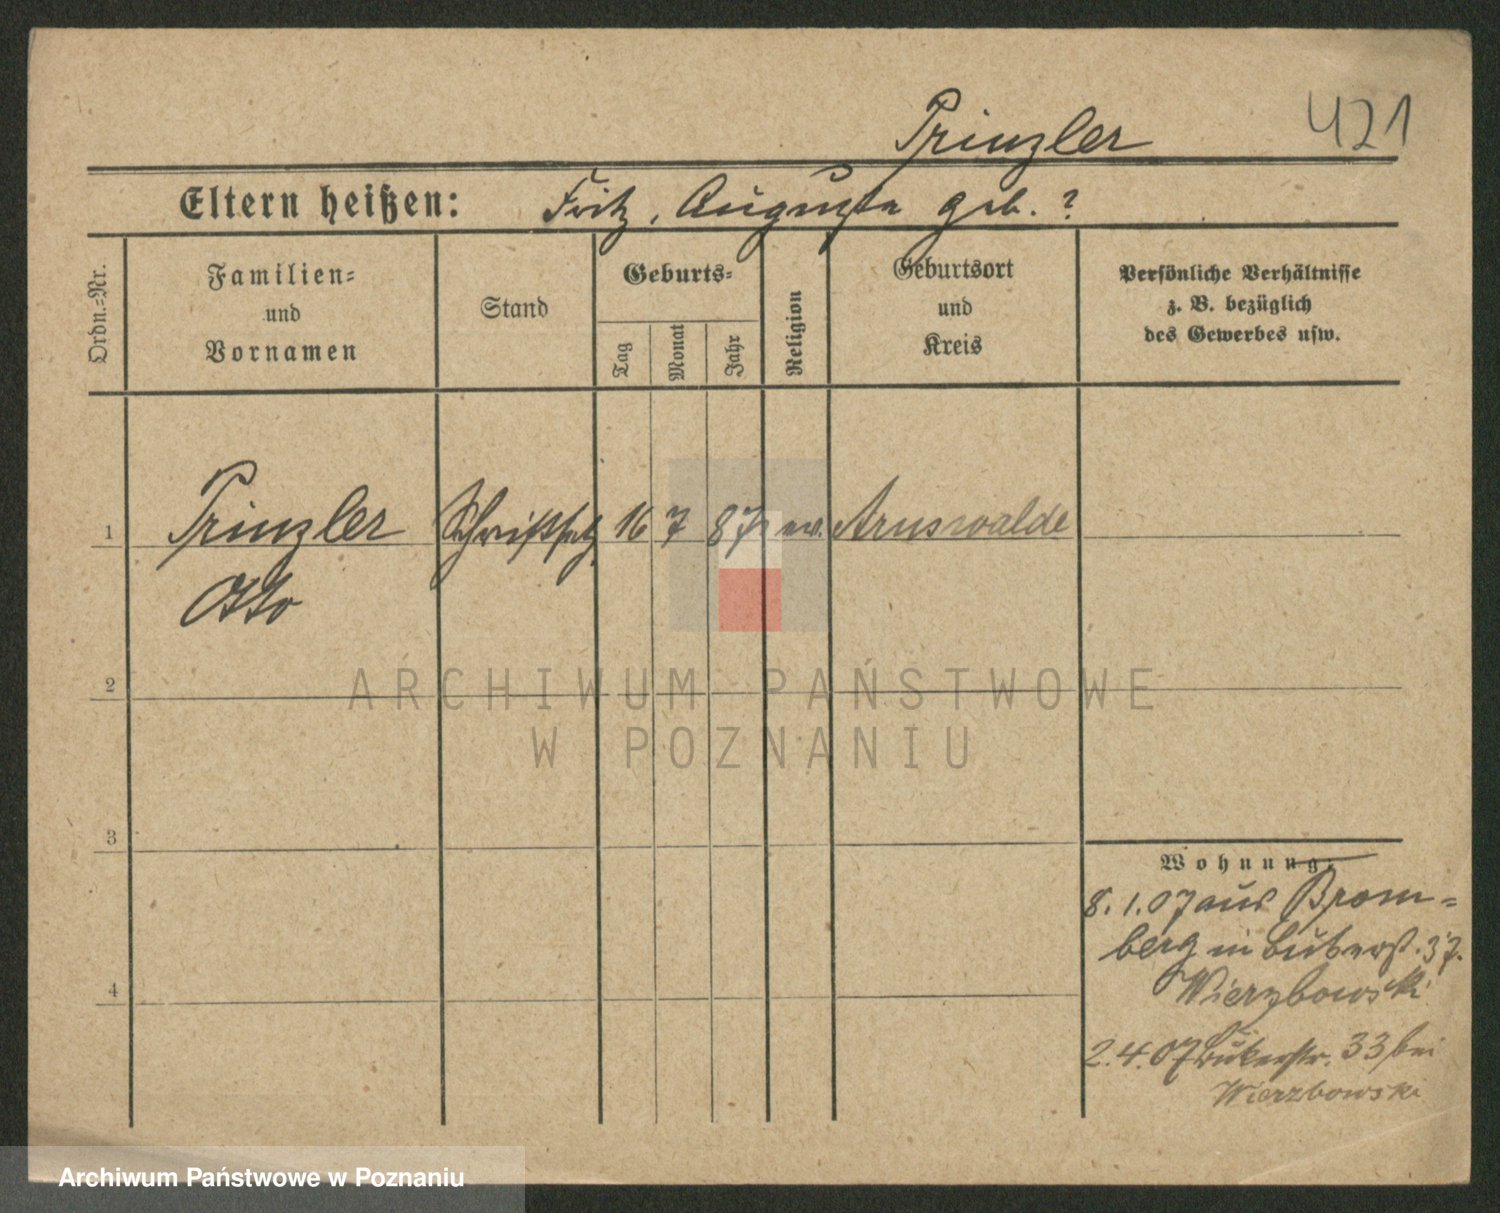 421
Prinzler
Eltern heißen: Fritz, Auguste geb. ?
Ordn.-Nr.
Familien-
und
Vornamen
Stand
Geburts-
Tag
Monat
Jahr
Religion
Geburtsort
und
Kreis
Persönliche Verhältnisse
z. B. bezüglich
des Gewerbes usw.
1 Prinzler Schriftsetz. 16 7 87 ev. Arnswalde
Otto
2
3
4
Wohnung:
8.1.07 aus Brom-
berg in 37.
Wierzbowski
2.4.07 33 bei
Wierzbowski
ARCHIWUM PAŃSTWOWE
W POZNANIU
Archiwum Państwowe w Poznaniu